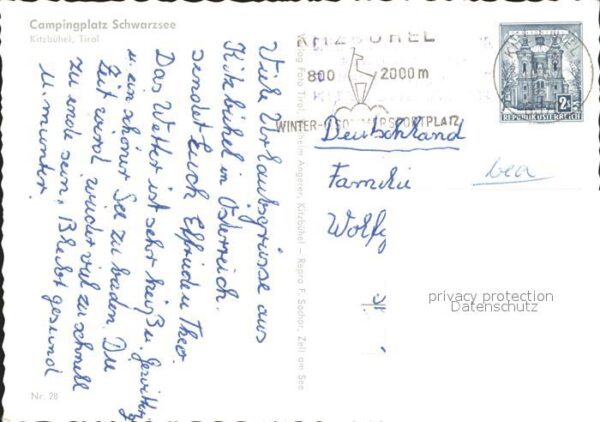 Campingplatz Schwarzsee
Kitzbühel, Tirol
Viele Urlaubsgrüsse aus
Kitzbühel in Österreich.
sendet Euch Elfriede u. Theo.
Das Wetter ist sehr heiß u. gewittrig
u. ein schöner See zu baden. Die
Zeit wird wieder viel zu schnell
zu ende sein, Bleibt gesund
u. munter.
Nr. 28
Verlag Foto Tirol Angerer, Kitzbühel - Repro F. Sochor, Zell am See
KITZBÜHEL
800 2000m
WINTER- SOMMERSPORTPLATZ
2S
REPUBLIK ÖSTERREICH
Deutschland
Familie
Wolfg
bea
privacy protection
Datenschutz